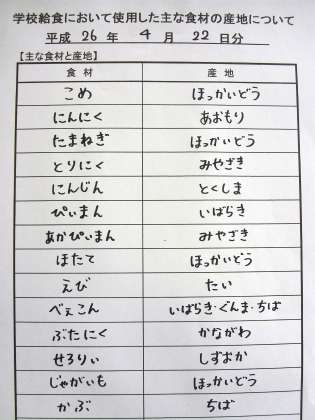 学校給食において使用した主な食材の産地について
平成 26 年 4 月 22 日分
【主な食材と産地】
食材 産地
こめ ほっかいどう
にんにく あおもり
たまねぎ ほっかいどう
とりにく みやざき
にんじん とくしま
ぴぃまん いばらき
あかぴぃまん みやざき
ほたて ほっかいどう
えび たい
べぇこん いばらき・ぐんま・ちば
ぶたにく かながわ
せろりぃ しずおか
じゃがいも ほっかいどう
かぶ ちば